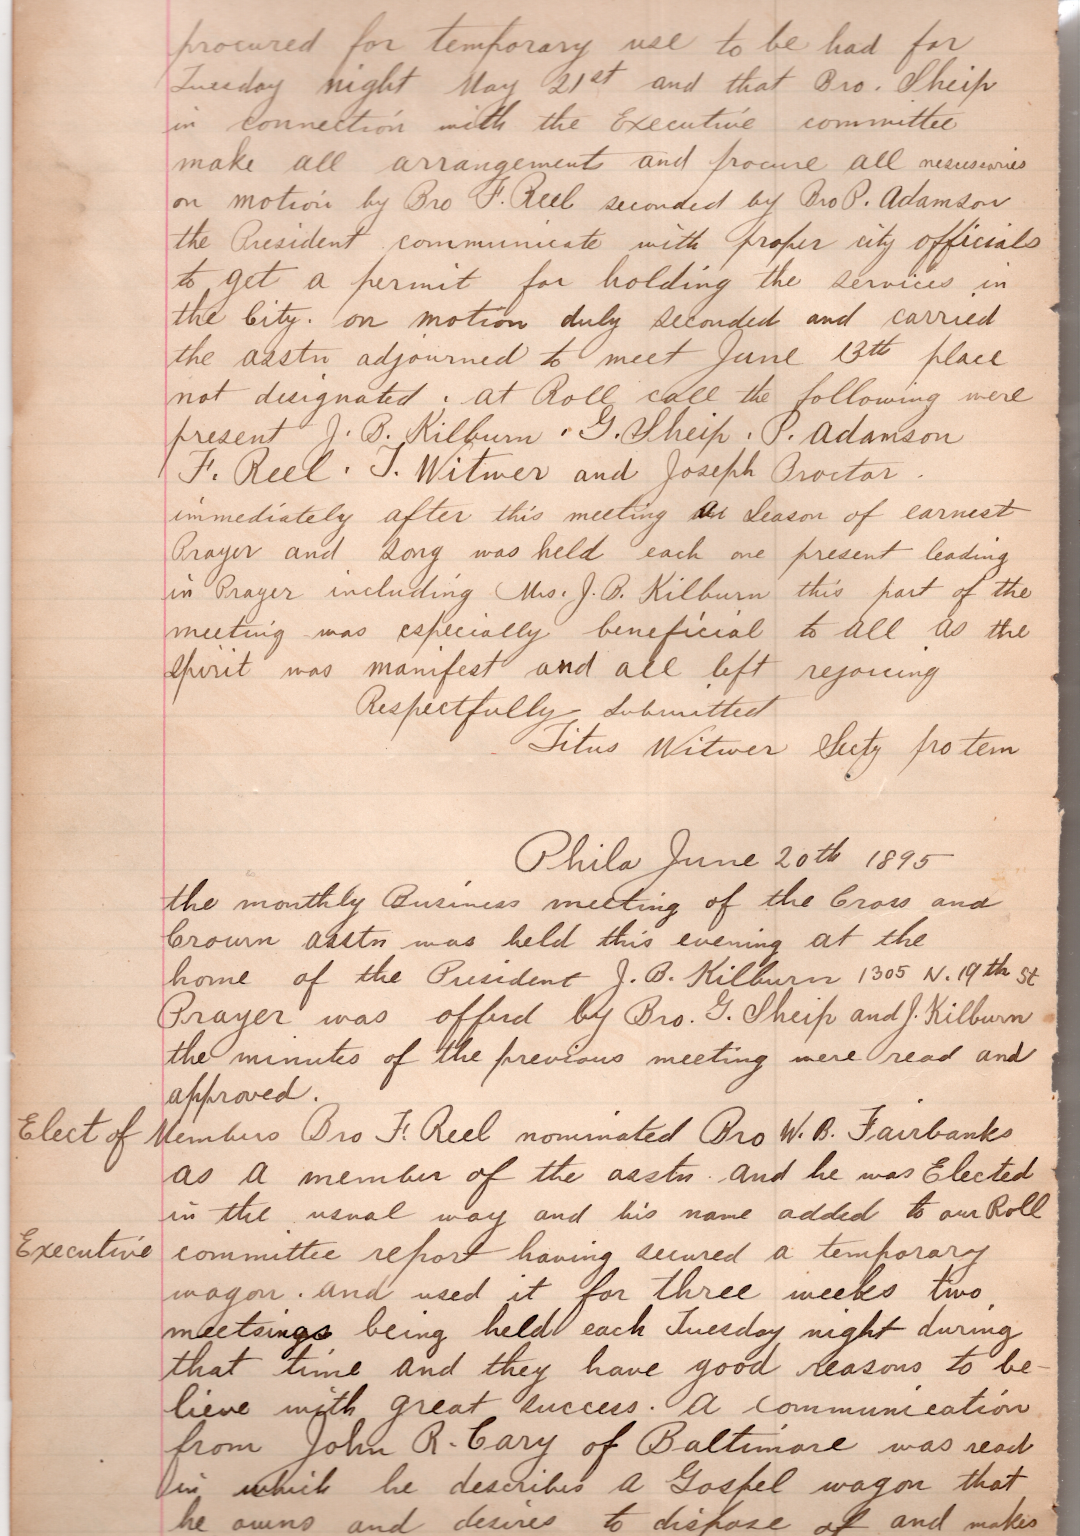 procured for temporary use to be had for
Tuesday night May 21st and that Bro. Sheip
in connection with the Executive committee
make all arrangement and procure all nesuscories
on motion by Bro F. Reel seconded by Bro P. Adamson
the President communicate with proper city officials
to get a permit for holding the services in
the City. on motion duly seconded and carried
the asstn adjourned to meet June 13th place
not designated. at Roll call the following were
present J. B. Kilburn . G. Sheip . P. Adamson
F. Reel . T. Witwer and Joseph Proctor .
immediately after this meeting a Season of earnest
Prayer and song was held each one present leading
in Prayer including Mrs. J. B. Kilburn this part of the
meeting was especially beneficial to all as the
spirit was manifest and all left rejoicing
Respectfully Submitted
Titus Witwer Secty pro tem
Phila June 20th 1895
the monthly Business meeting of the Cross and
Crown asstn was held this evening at the
home of the President J. B. Kilburn 1305 N. 19th St
Prayer was offerd by Bro. G. Sheip and J. Kilburn
the minutes of the previous meeting were read and
approved.
Elect of Members Bro F. Reel nominated Bro W. B. Fairbanks
as a member of the asstn and he was Elected
in the usual way and his name added to our Roll
Executive committee report having secured a temporary
wagon . and used it for three weeks two
meetsings being held each Tuesday night during
that time and they have good reasons to be-
lieve with great success. A communication
from John R. Cary of Baltimore was read
in which he describes a Gospel wagon that
he owns and desires to dispose of and makes